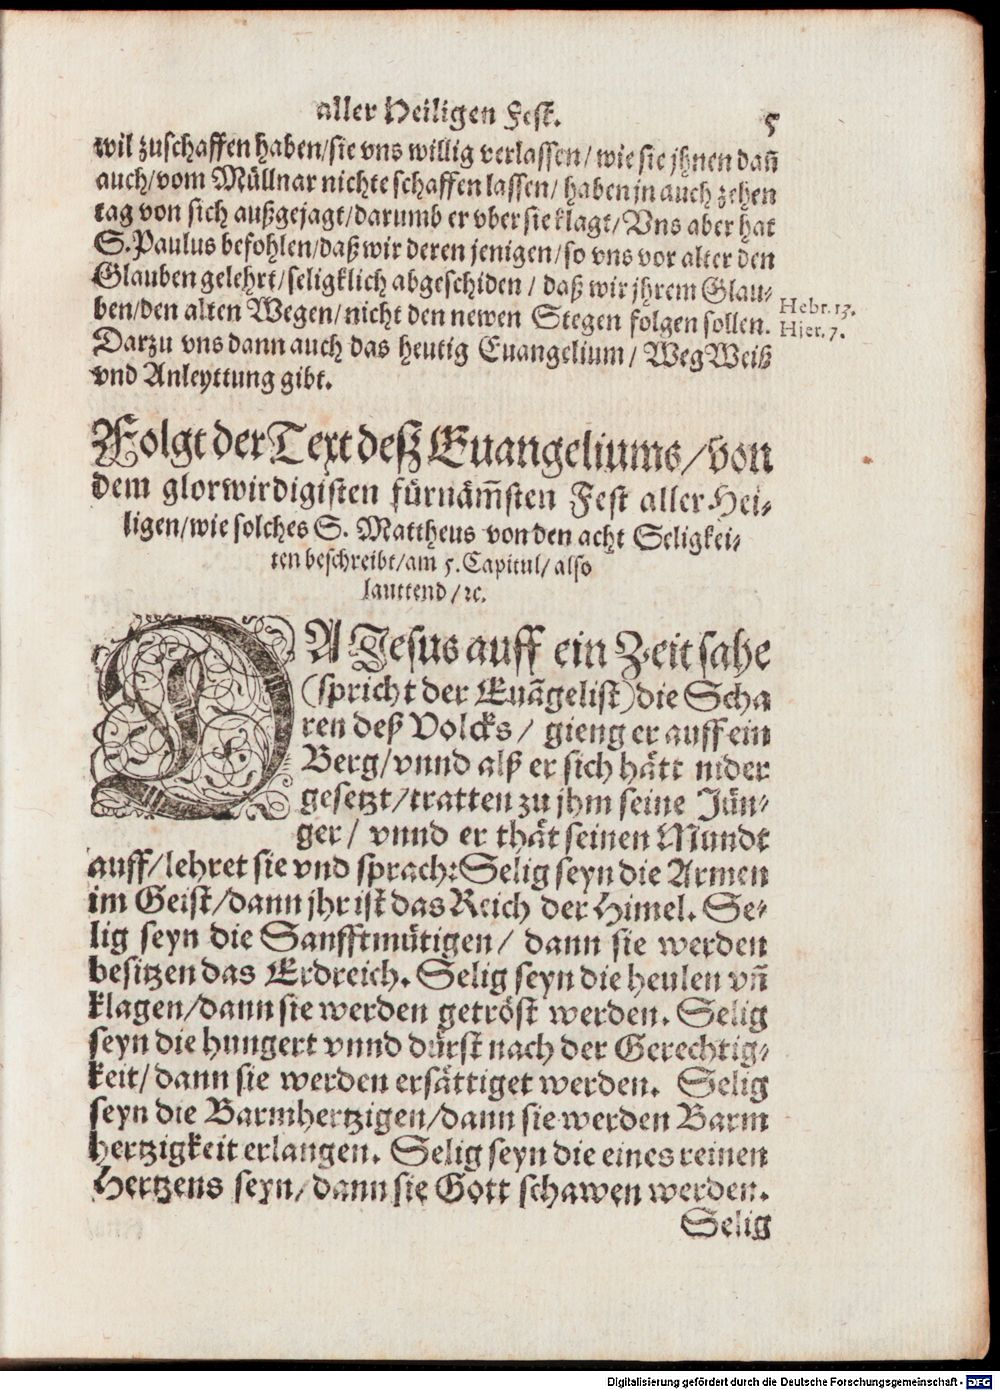 aller Heiligen Fest. 5
wil zuschaffen haben/sie vns willig verlassen/ wie sie jhnen dañ
auch/vom Müllnar nichte schaffen lassen/ haben jn auch zehen
tag von sich außgejagt/darumb er vber sie klagt/Vns aber hat
S. Paulus befohlen/daß wir deren jenigen/so vns vor alter den
Glauben gelehrt/seligklich abgeschiden/ daß wir jhrem Glau-
ben/den alten Wegen/nicht den newen Stegen folgen sollen.
Hebr. 13.
Hier. 7.
Darzu vns dann auch das heutig Euangelium/ Weg Weiß
vnd Anleyttung gibt.
Folgt der Text deß Euangeliums/von
dem glorwirdigisten fürnäm̃sten Fest aller Hei-
ligen/wie solches S. Mattheus von den acht Seligkei-
ten beschreibt/am 5. Capitul/also
lauttend/ꝛc.
DA Jesus auff ein Zeit sahe
(spricht der Euãgelist) die Scha
ren deß Volcks/ gieng er auff ein
Berg/vnnd alß er sich hätt nider
gesetzt/tratten zu jhm seine Jün-
ger/ vnnd er thät seinen Mundt
auff/lehret sie vnd sprach: Selig seyn die Armen
im Geist/dann jhr ist das Reich der Himel. Se-
lig seyn die Sanfftmütigen/ dann sie werden
besitzen das Erdreich. Selig seyn die heulen vñ
klagen/dann sie werden getröst werden. Selig
seyn die hungert vnnd dürst nach der Gerechtig-
keit/dann sie werden ersättiget werden. Selig
seyn die Barmhertzigen/dann sie werden Barm
hertzigkeit erlangen. Selig seyn die eines reinen
Hertzens seyn/dann sie Gott schawen werden.
Selig
Digitalisierung gefördert durch die Deutsche Forschungsgemeinschaft - DFG